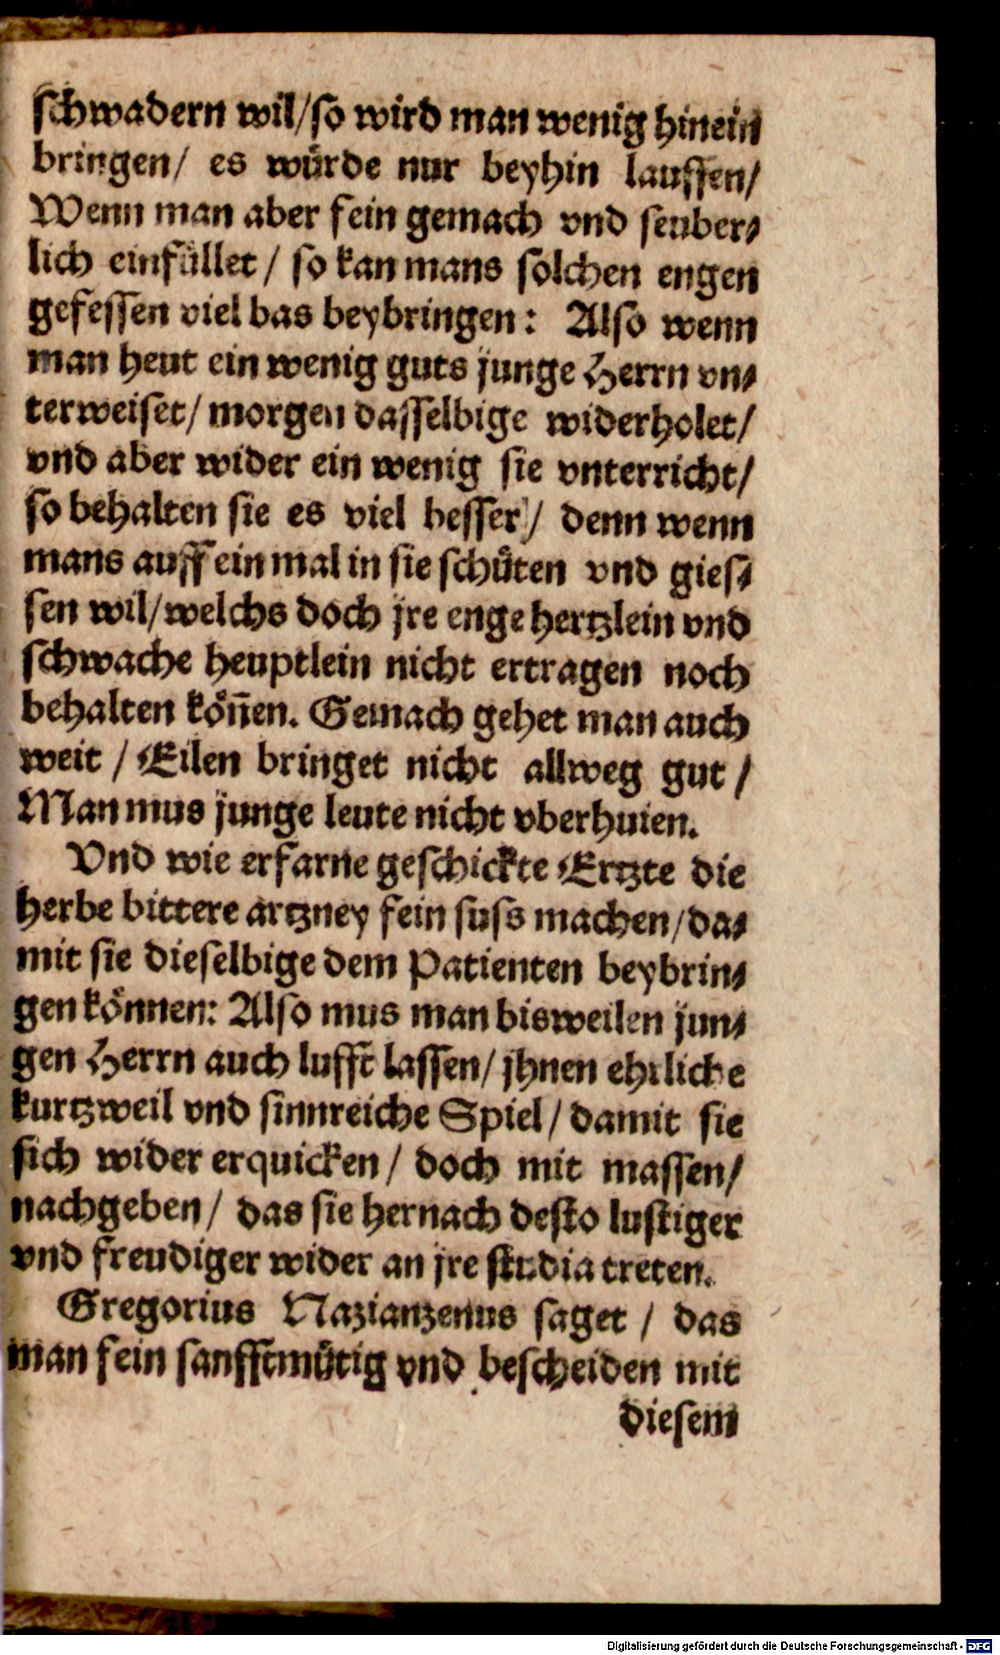 schwadern wil/so wird man wenig hinein
bringen/ es würde nur beyhin lauffen/
Wenn man aber fein gemach vnd seuber⸗
lich einfüllet / so kan mans solchen engen
gefessen viel bas beybringen: Also wenn
man heut ein wenig guts junge Herrn vn⸗
terweiset/ morgen dasselbige widerholet/
vnd aber wider ein wenig sie vnterricht/
so behalten sie es viel besser/ denn wenn
mans auff ein mal in sie schüten vnd gies⸗
sen wil/welchs doch jre enge hertzlein vnd
schwache heuptlein nicht ertragen noch
behalten köñen. Gemach gehet man auch
weit / Eilen bringet nicht allweg gut /
Man mus junge leute nicht vberhuien.
Vnd wie erfarne geschickte Ertzte die
herbe bittere artzney fein suss machen/da⸗
mit sie dieselbige dem Patienten beybrin⸗
gen können: Also mus man bisweilen jun⸗
gen Herrn auch lufft lassen/ jhnen ehrliche
kurtzweil vnd sinnreiche Spiel/ damit sie
sich wider erquicken/ doch mit massen/
nachgeben/ das sie hernach desto lustiger
vnd freudiger wider an jre studia treten.
Gregorius Nazianzenus saget / das
man fein sanfftmütig vnd bescheiden mit
diesem
Digitalisierung gefördert durch die Deutsche Forschungsgemeinschaft - DFG